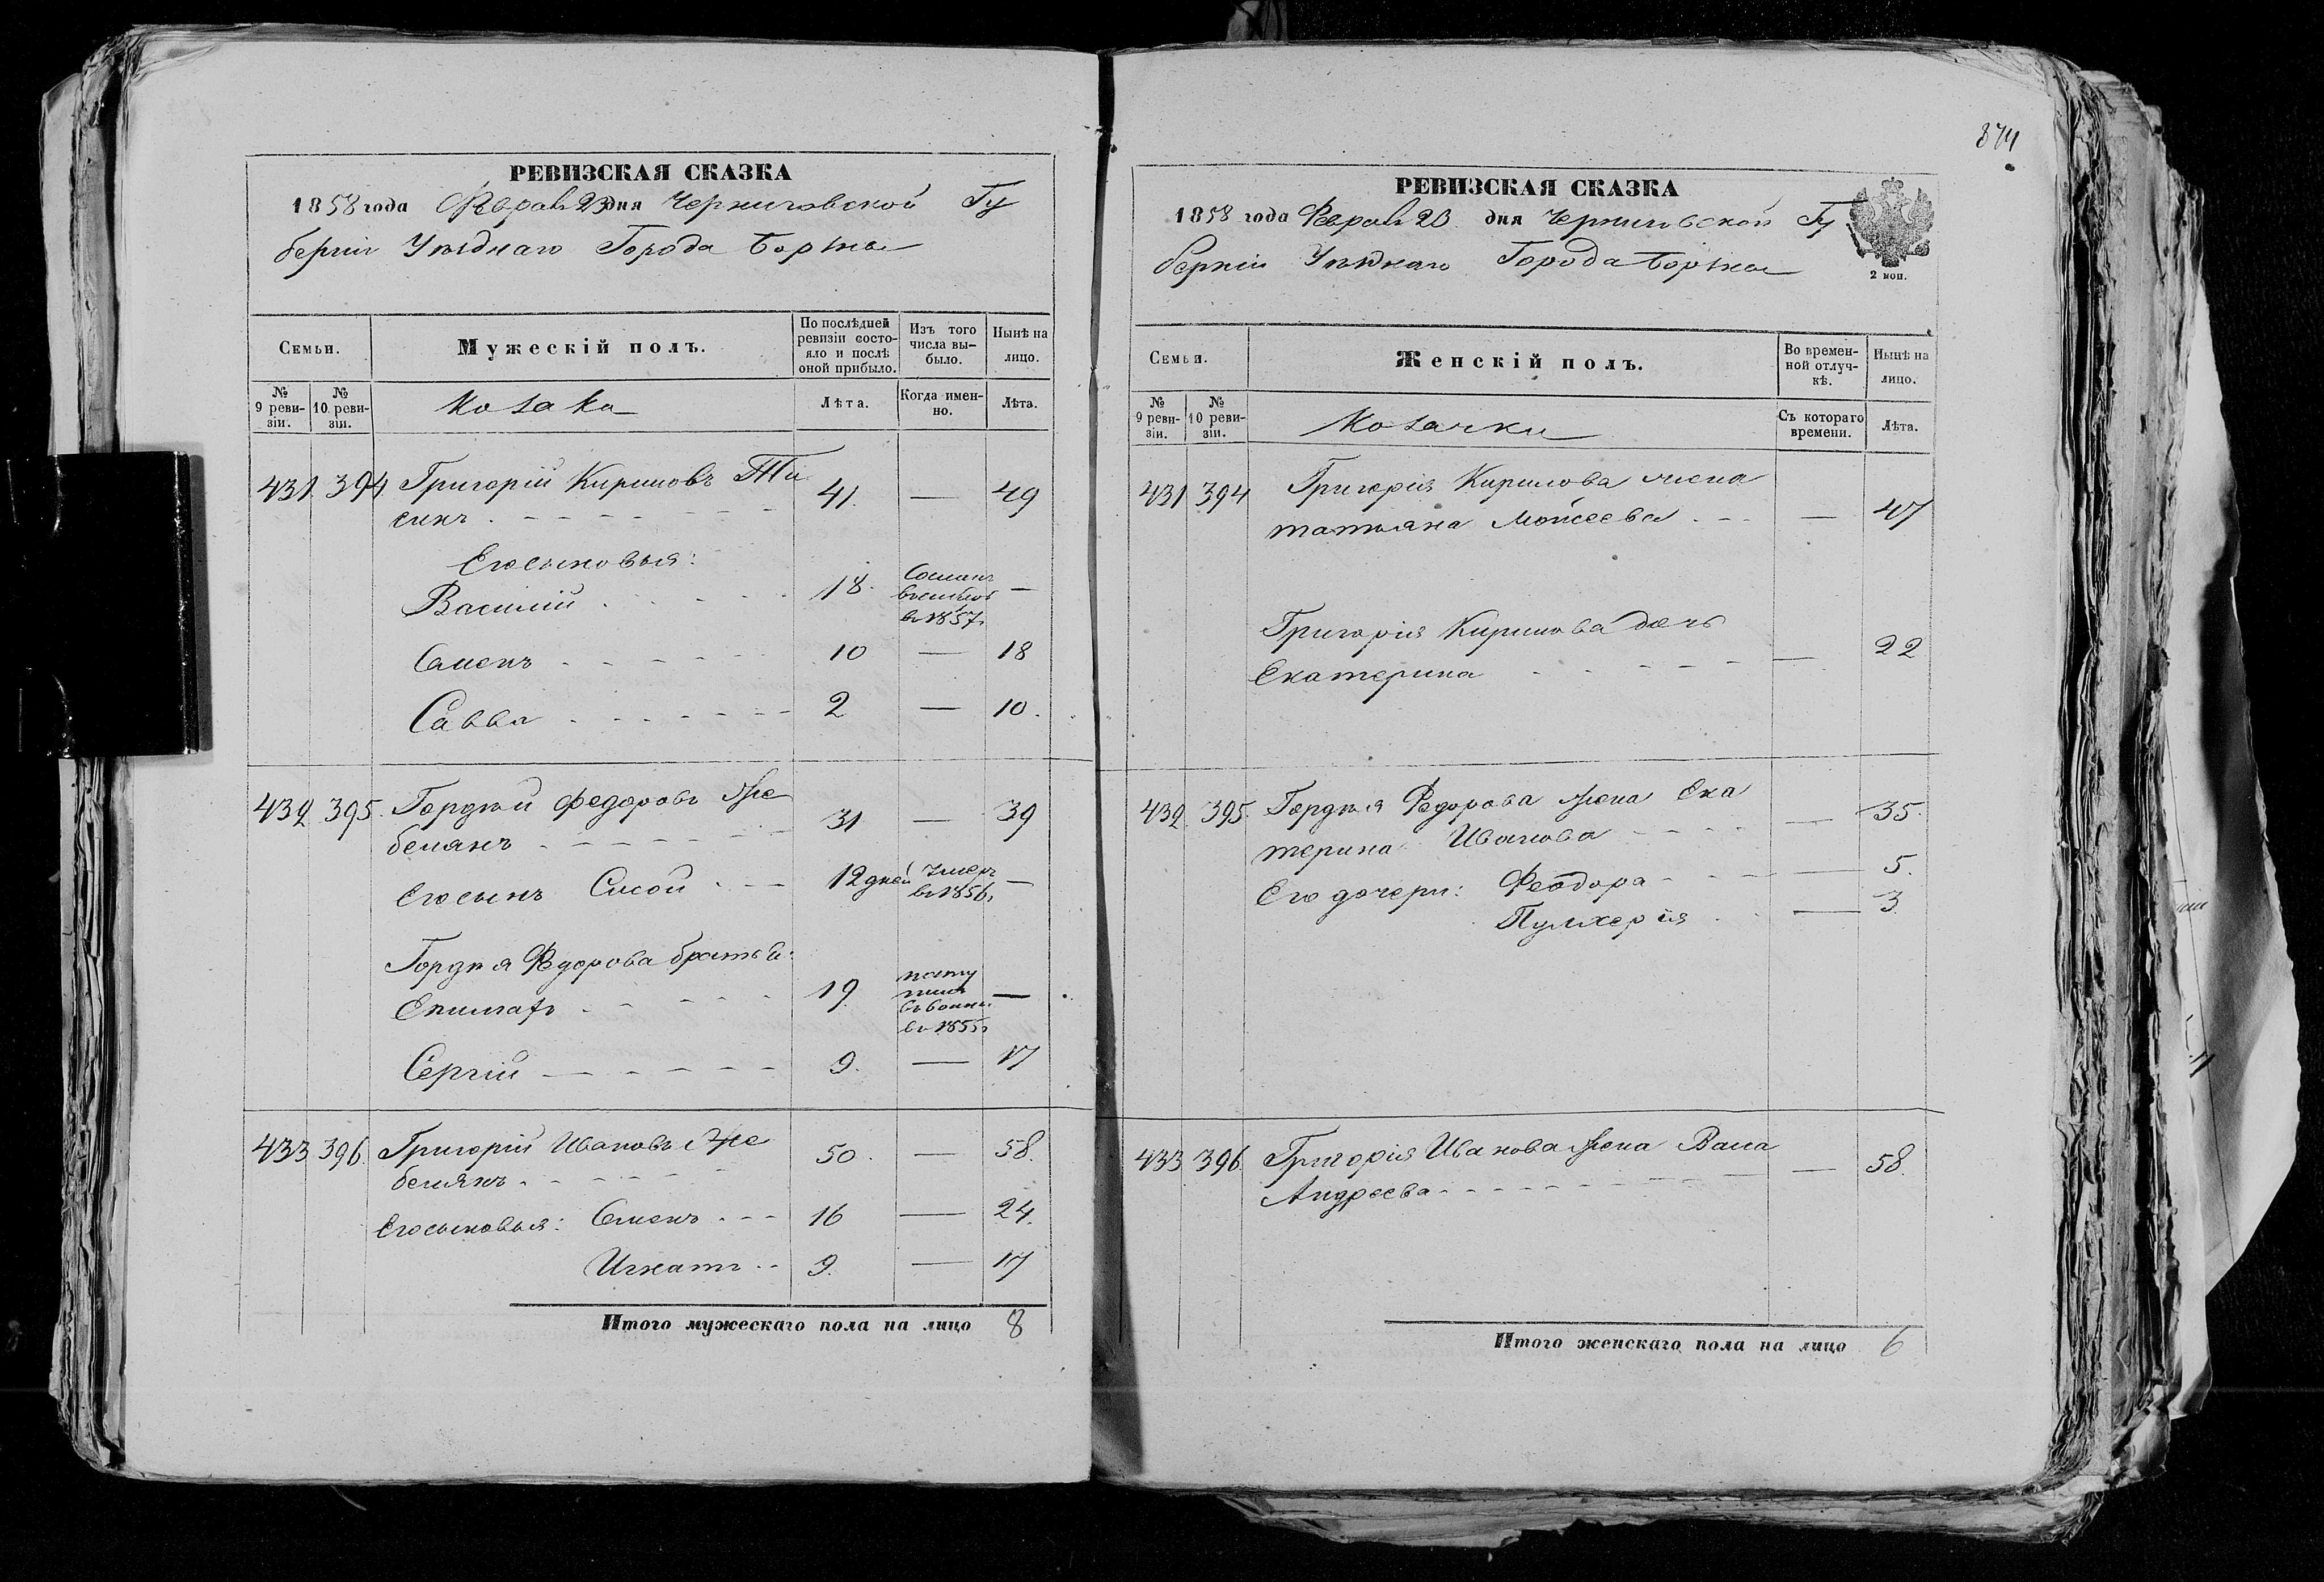 РЕВИЗСКАЯ СКАЗКА
1858 года Феврал 23 дня Черниговской Гу
берніи Уѣзднаго Города Борзны
Семьи.
Мужескій полъ.
По послѣдней ревизіи состояло и послѣ оной прибыло.
Изъ того числа выбыло.
Нынѣ на лицо.
№ 9 ревизіи.
№ 10 ревизіи.
Козаки
Лѣта.
Когда именно.
Лѣта.
431 394 Григорій Кириловъ 41. — 49
Его сыновья:
Василій 18. — въ 1857г
Семенъ 10 — 18
Савва 2 — 10.
432 395. Гордѣй Федоровъ Же 31 — 39
белянъ
Его сынъ Сисой 12 дней умеръ —
въ 1856г
Гордѣя Федорова братья:
19. —
въ 1855г
Сергій 9. — 17
433 396. Григорій Ивановъ Же 50. — 58.
белянъ
Его сыновья: Семенъ 16 — 24.
Игнатъ 9. — 17
Итого мужескаго пола на лицо 8
874
РЕВИЗСКАЯ СКАЗКА
1858 года Феврал 23 дня Черниговской Гу
берніи Уѣзднаго Города Борзны
2 коп.
Семьи.
Женскій полъ.
Во временной отлучкѣ.
Нынѣ на лицо.
№ 9 ревизіи.
№ 10 ревизіи.
Козачки
Съ котораго времени.
Лѣта.
431 394 Григорія Кирилова жена
татьяна Мойсеева — 47
Григорія Кирилова дочь
Екатерина — 22
432 395. Гордѣя Федорова жена Ека
терина Иванова — 35.
Его дочери: Феодора — 5.
Пулхерія — 3.
433 396. Григорія Иванова жена Васа
Андреева — 58.
Итого женскаго пола на лицо 6